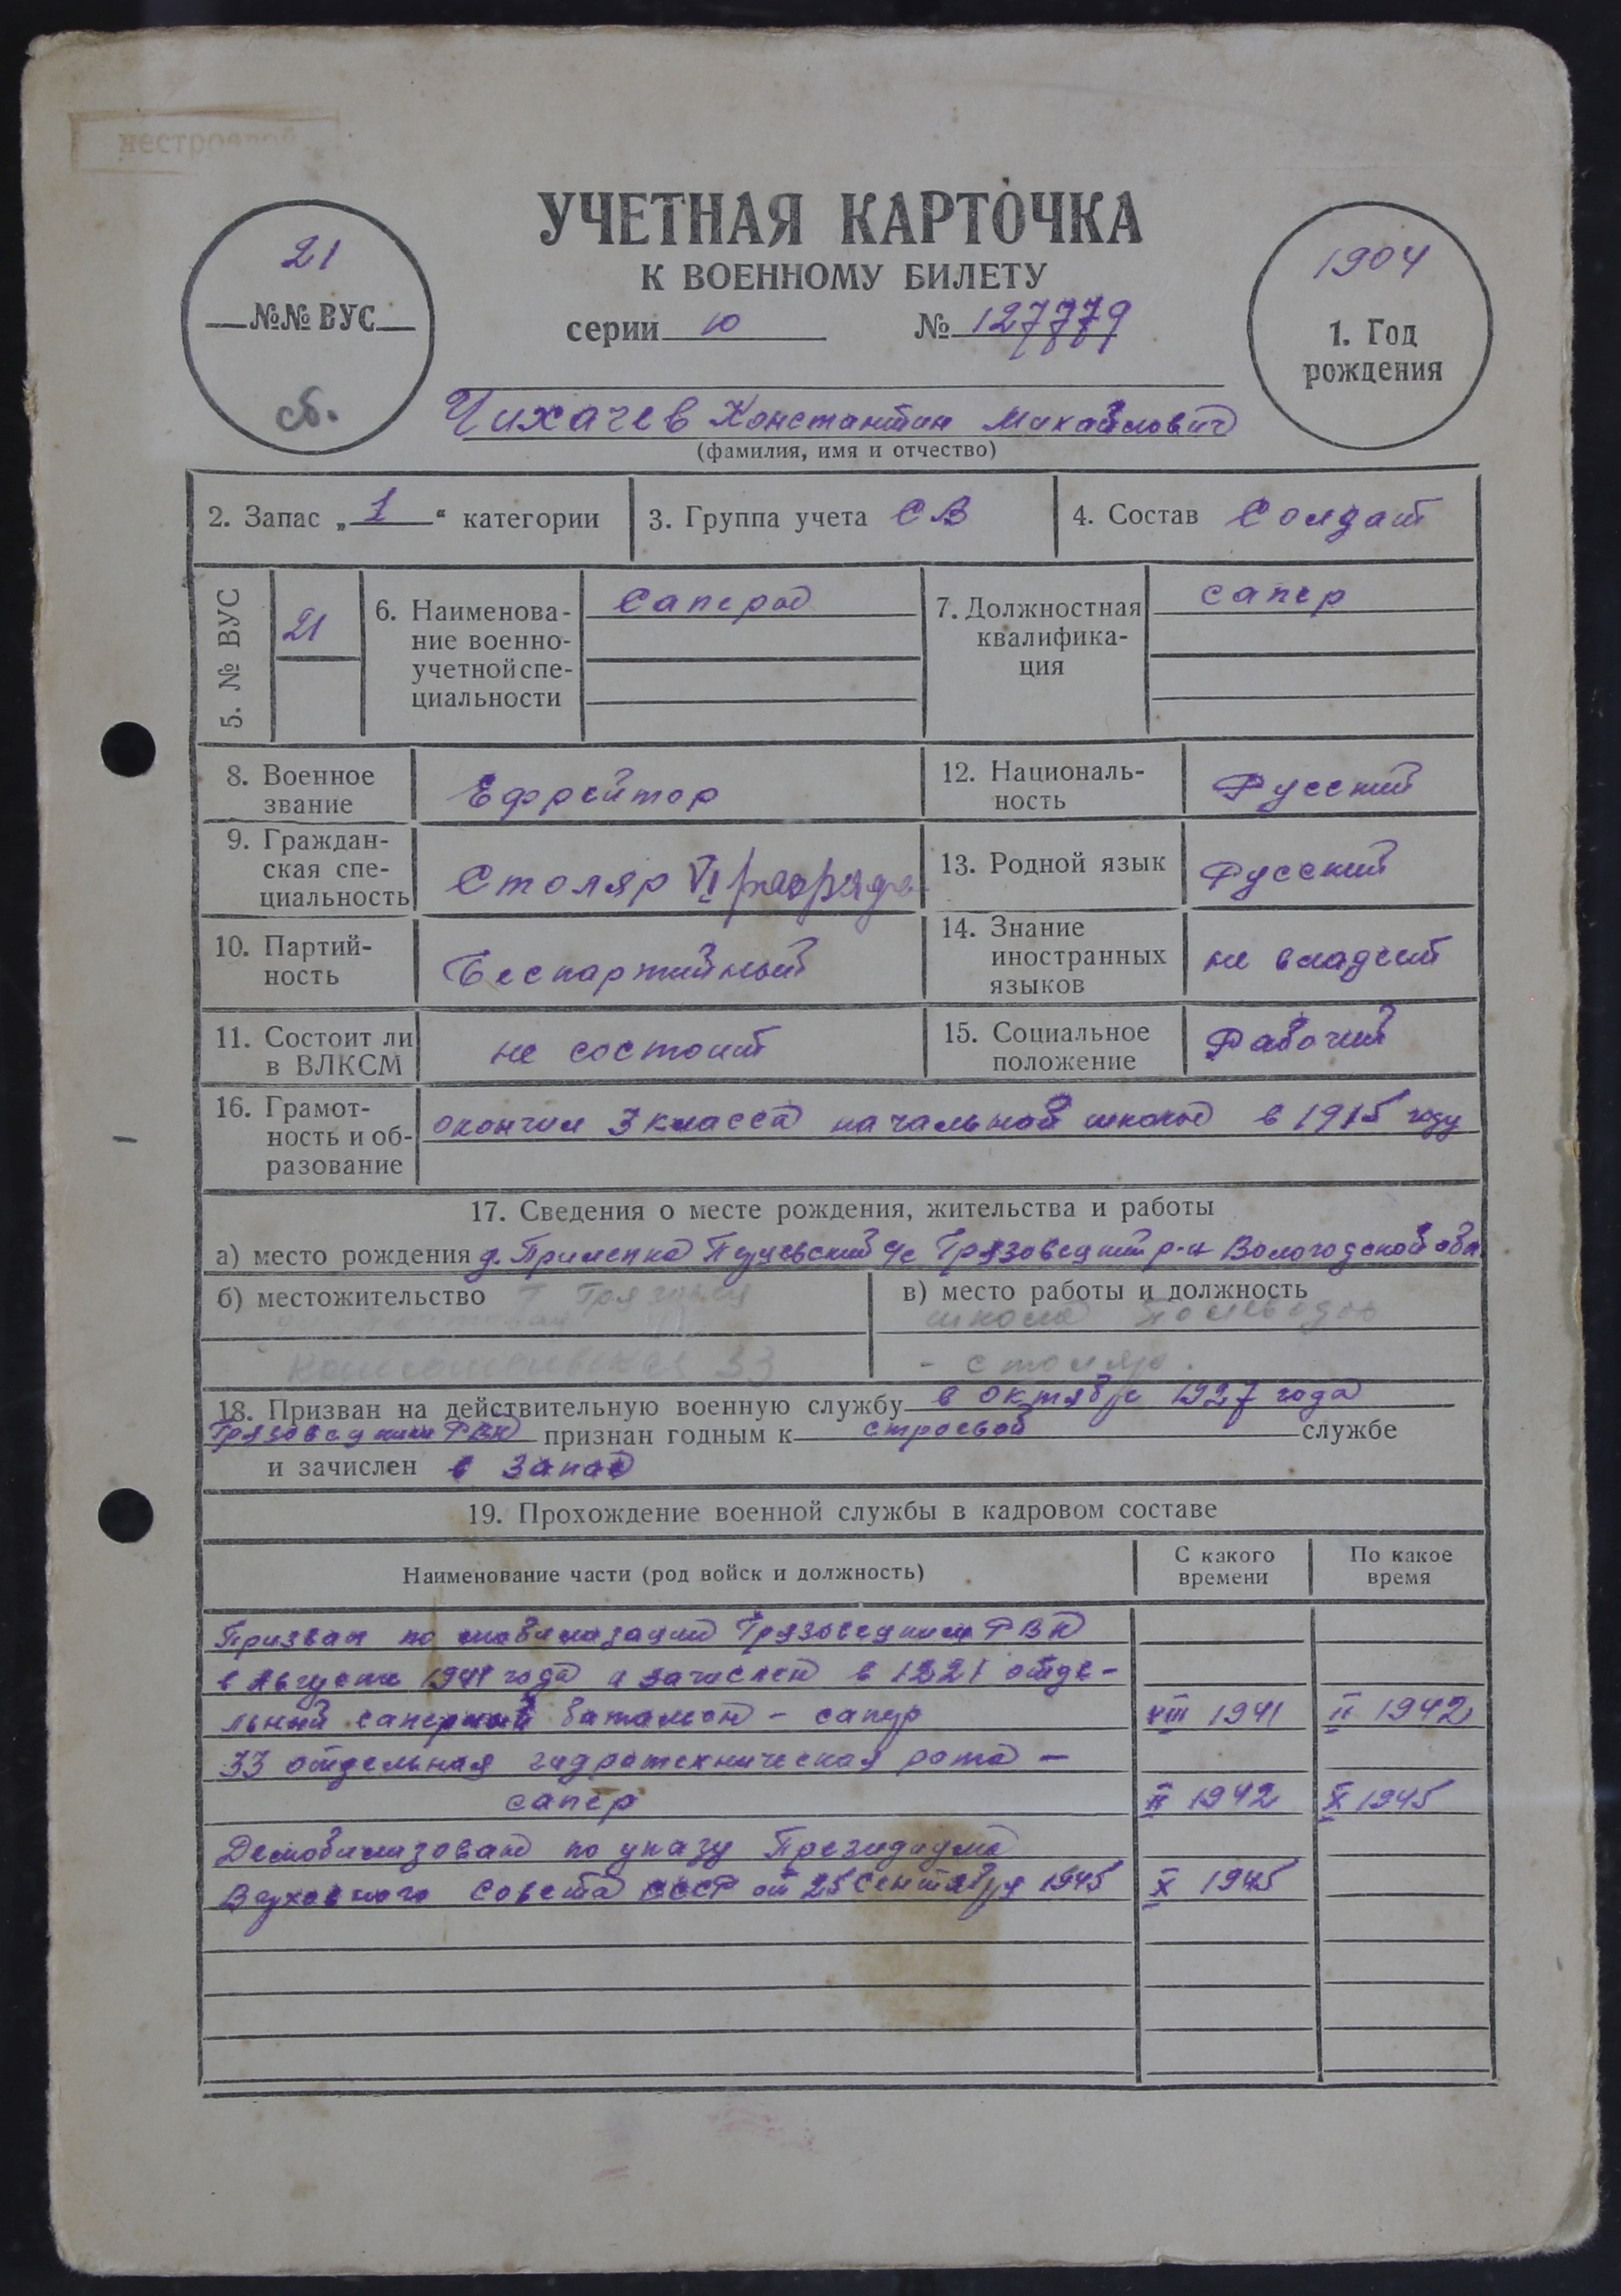 нестроевой
УЧЕТНАЯ КАРТОЧКА
К ВОЕННОМУ БИЛЕТУ
серии ю № 127779
21
№№ ВУС
сб.
1904
1. Год
рождения
Чихачев Константин Михайлович
(фамилия, имя и отчество)
2. Запас „1“ категории
3. Группа учета СВ
4. Состав Солдат
5. № ВУС 21
6. Наименова-
ние военно-
учетной спе-
циальности
Саперы
7. Должностная
квалифика-
ция
сапер
8. Военное
звание
Ефрейтор
12. Националь-
ность
Русский
9. Граждан-
ская спе-
циальность
Столяр VI разряда
13. Родной язык
Русский
10. Партий-
ность
Беспартийный
14. Знание
иностранных
языков
не владеет
11. Состоит ли
в ВЛКСМ
не состоит
15. Социальное
положение
Рабочий
16. Грамот-
ность и об-
разование
окончил 3 класса начальной школы в 1915 году
17. Сведения о месте рождения, жительства и работы
а) место рождения д. с/с Грязовецкий р-н Вологодской обл
б) местожительство г Грязовец
33
в) место работы и должность
школа
- столяр.
18. Призван на действительную военную службу в октябре 1927 года
Грязовецким РВК признан годным к строевой службе
и зачислен в запас
19. Прохождение военной службы в кадровом составе
Наименование части (род войск и должность)
С какого
времени
По какое
время
Призван по мобилизации Грязовецким РВК
в Августе 1941 года и зачислен в 1221 отде-
льный саперный батальон - сапер VIII 1941 II 1942
33 отдельная гидротехническая рота -
сапер II 1942 X 1945
Демобилизован по указу Президиума
Верховного Совета СССР от 25 Сентября 1945 X 1945